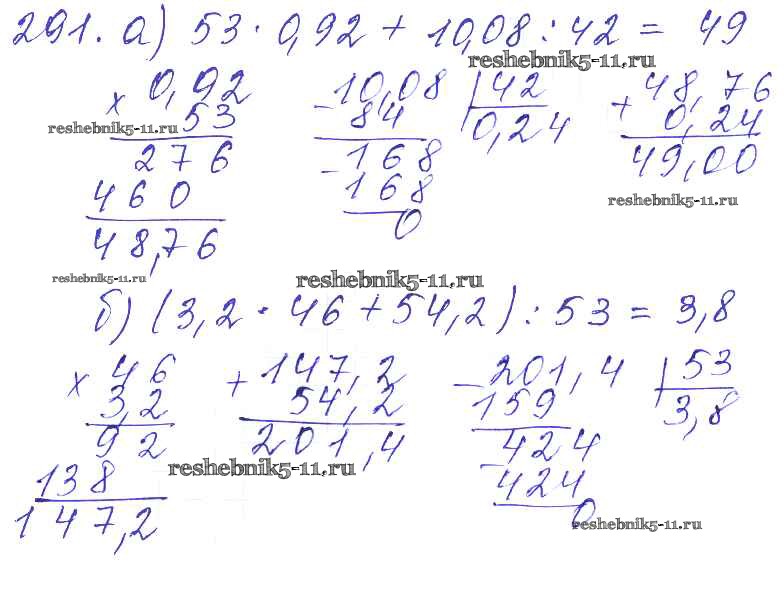 291. а) 53 · 0,92 + 10,08 : 42 = 49
reshebnik5-11.ru
× 0,92
53
reshebnik5-11.ru
276
460
48,76
reshebnik5-11.ru
- 10,08 | 42
84 0,24
- 168
168
0
+ 48,76
0,24
49,00
reshebnik5-11.ru
reshebnik5-11.ru
б) (3,2 · 46 + 54,2) : 53 = 3,8
× 46
3,2
92
138
147,2
+ 147,2
54,2
201,4
reshebnik5-11.ru
- 201,4 | 53
159 3,8
- 424
424
0
reshebnik5-11.ru